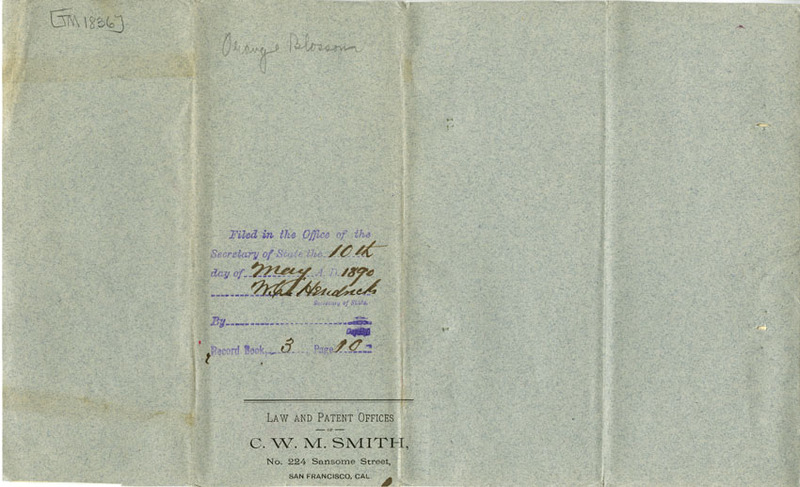 [TM 1836]
Orange Blossom
Filed in the Office of the
Secretary of State the 10th
day of May A. D. 1890
Hendricks
Secretary of State.
By
Deputy
Record Book, 3 Page 10
LAW AND PATENT OFFICES
— OF —
C. W. M. SMITH,
No. 224 Sansome Street,
SAN FRANCISCO, CAL